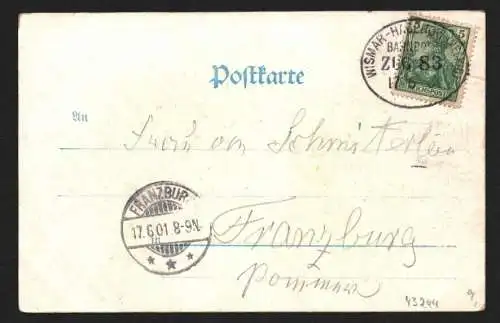 WISMAR-
BAHNPOST
ZUG 83
5
Postkarte
An
Frau von
FRANZBURG
17.6.01.8-9N.
Franzburg
Pommern
43244